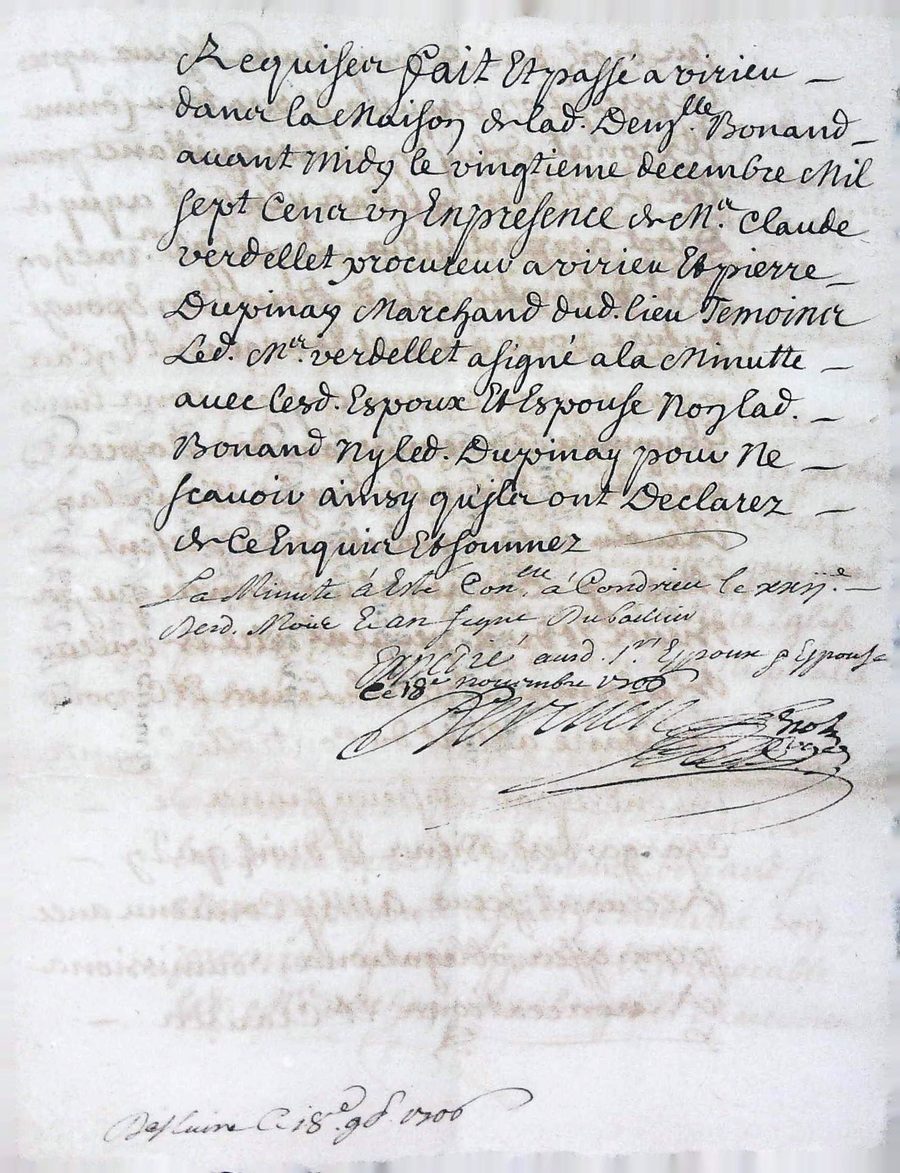 Requises fait Et passé a virieu –
dans la Maison de lad. Dem.lle Bonand –
avant Midy le vingtieme decembre Mil
sept Cens vn En presence de M.r Claude
verdellet procureur a virieu Et pierre –
Dupinay Marchand dud. lieu Temoins
Led. M.r verdellet a signé a la Minutte –
avec lesd. Espoux Et Espouse Non lad. –
Bonand Ny led. Dupinay pour Ne –
scavoir ainsy qu'jls ont Declarez –
de Ce Enquis Et sommez
La Minute à Esté Con.lee à Condrieu le xxij.e –
Desd. Mois Et an signé
Expedié ausd. Espoux & Espouse
Ce 18e novembre 1706
Ce 18.e 9b. 1706